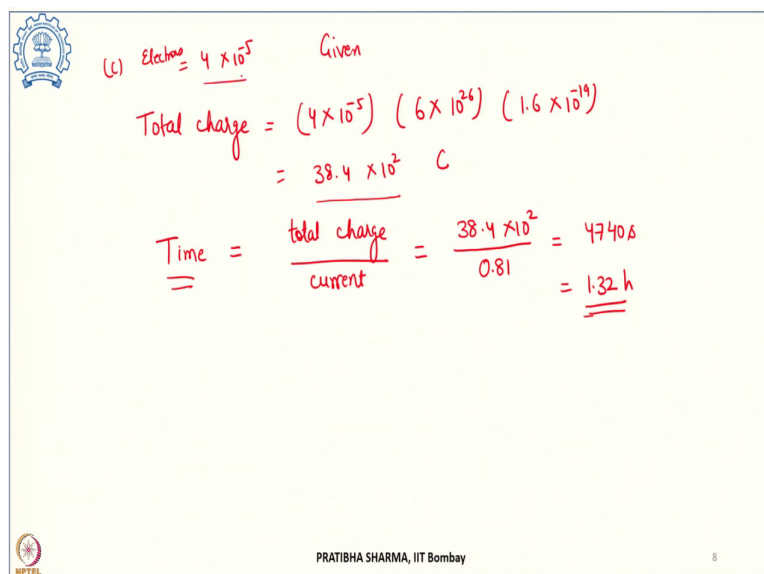 (c) Electrons = 4 × 10⁻⁵ Given
Total charge = (4 × 10⁻⁵) (6 × 10²⁶) (1.6 × 10⁻¹⁹)
= 38.4 × 10² C
Time = total charge / current = 38.4 × 10² / 0.81 = 4740 s
= 1.32 h
NPTEL
PRATIBHA SHARMA, IIT Bombay
8